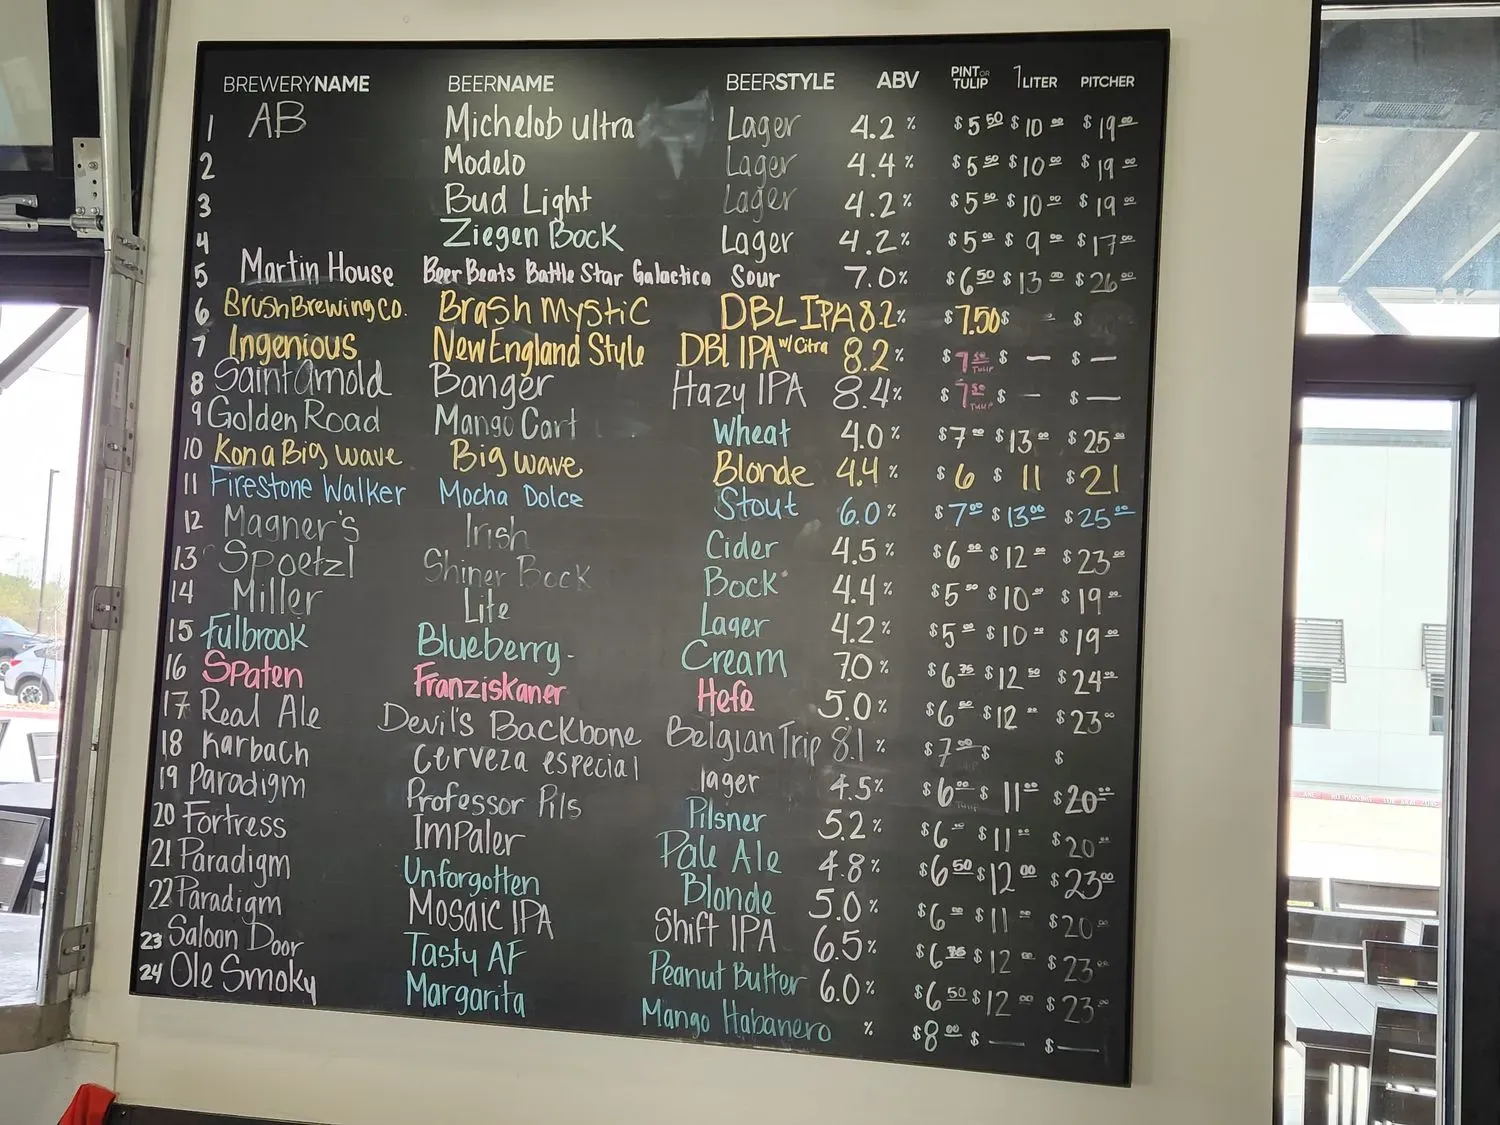 BREWERYNAME BEERNAME BEERSTYLE ABV PINT OR TULIP 1 LITER PITCHER
1 AB Michelob ultra Lager 4.2% $5 50 $10 00 $19 00
2 Modelo Lager 4.4% $5 50 $10 00 $19 00
3 Bud Light Lager 4.2% $5 50 $10 00 $19 00
4 Ziegen Bock Lager 4.2% $5 00 $9 00 $17 00
5 Martin House Beer Beats Battle Star Galactica Sour 7.0% $6 50 $13 00 $26 00
6 Brush Brewing Co. Brash Mystic DBL IPA 8.2% $7.50 $ - $
7 Ingenious New England Style DBL IPA w/ Citra 8.2% $7 50 TULIP $ — $ —
8 Saint Arnold Banger Hazy IPA 8.4% $7 50 TULIP $ — $ —
9 Golden Road Mango Cart Wheat 4.0% $7 00 $13 00 $25 00
10 Kona Big Wave Big wave Blonde 4.4% $6 $11 $21
11 Firestone Walker Mocha Dolce Stout 6.0% $7 00 $13 00 $25 00
12 Magner's Irish Cider 4.5% $6 00 $12 00 $23 00
13 Spoetzl Shiner Bock Bock 4.4% $5 50 $10 00 $19 00
14 Miller Lite Lager 4.2% $5 $10 00 $19 00
15 Fulbrook Blueberry - Cream 7.0% $6 75 $12 50 $24 00
16 Spaten Franziskaner Hefe 5.0% $6 $12 00 $23 00
17 Real Ale Devil's Backbone Belgian Trip 8.1% $7 $ $
18 Karbach Cerveza especial lager 4.5% $6 00 $11 00 $20 00
19 Paradigm Professor Pils Pilsner 5.2% $6 $11 00 $20 00
20 Fortress Impaler Pale Ale 4.8% $6 50 $12 00 $23 00
21 Paradigm Unforgotten Blonde 5.0% $6 $11 00 $20 00
22 Paradigm Mosaic IPA Shift IPA 6.5% $6 75 $12 00 $23 00
23 Saloon Door Tasty AF Peanut Butter 6.0% $6 50 $12 00 $23 00
24 Ole Smoky Margarita Mango Habanero % $8 00 $ — $ —